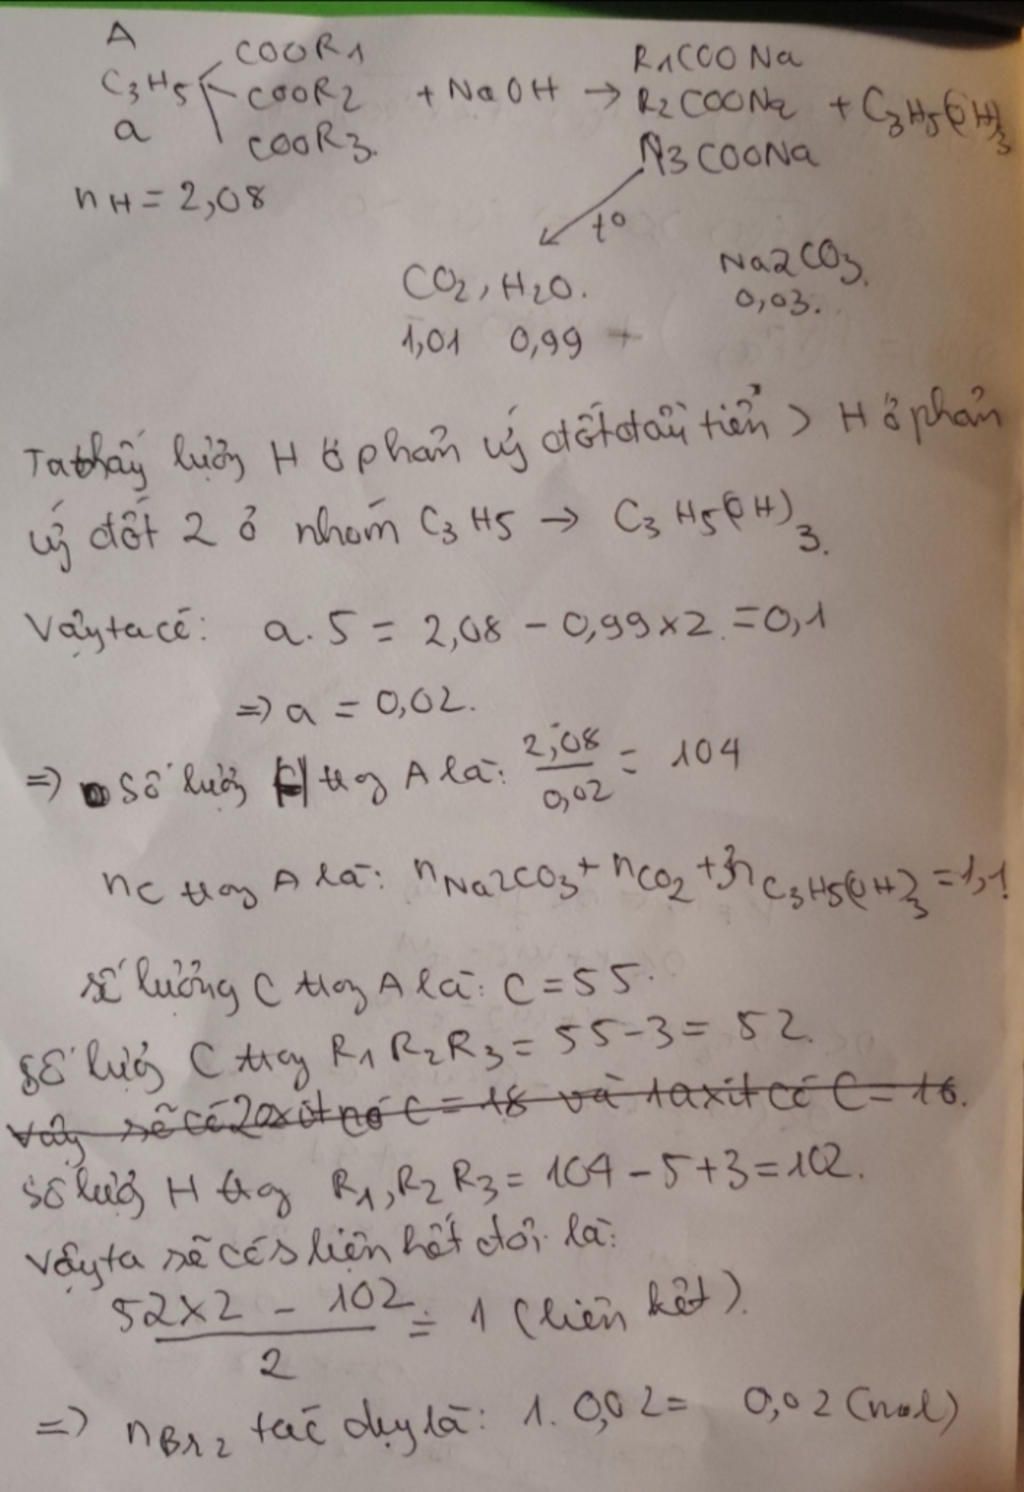 A
C3H5 COOR1
a COOR2
COOR3.
+ NaOH →
R1COONa
R2COONa + C3H5(OH)3
R3COONa
nH = 2,08
t°
CO2, H2O.
1,01 0,99
Na2CO3.
0,03.
Ta thấy lượng H ở phản ứng đốt đầu tiên > H ở phản
ứng đốt 2 ở nhóm C3H5 → C3H5(OH)3.
Vậy ta có: a.5 = 2,08 - 0,99x2 = 0,1
=> a = 0,02.
=> số lượng H trog A là: 2,08/0,02 = 104
nC trog A là: nNa2CO3 + nCO2 + 3nC3H5(OH)3 = 1,1
số lượng C trog A là: C = 55.
số lượg C trog R1 R2 R3 = 55-3 = 52.
Vậy sẽ có 2 axit có C = 18 và 1 axit có C = 16.
số lượg H trog R1, R2 R3 = 104 - 5 + 3 = 102.
Vậy ta sẽ có s liên kết đôi là:
52x2 - 102 / 2 = 1 (liên kết).
=> nBr2 tác dụg là: 1. 0,02 = 0,02 (mol)